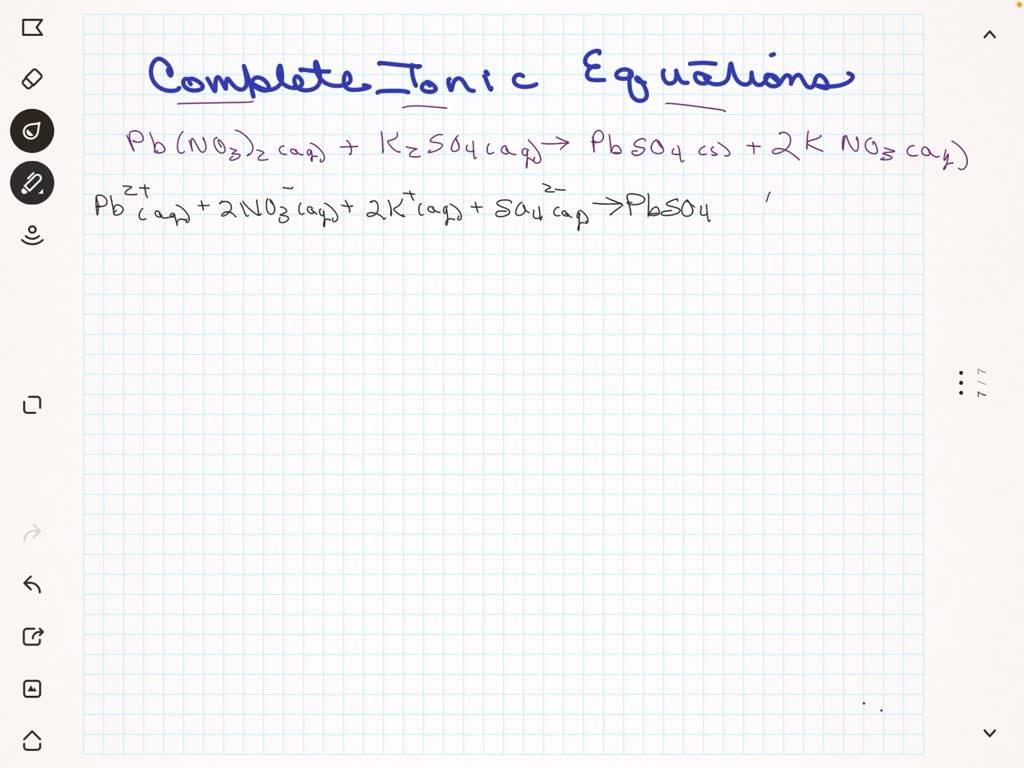 Complete Ionic Equations
Pb(NO3)2(aq) + K2SO4(aq) → PbSO4(s) + 2KNO3(aq)
Pb2+(aq) + 2NO3-(aq) + 2K+(aq) + SO42-(aq) → PbSO4
7/7